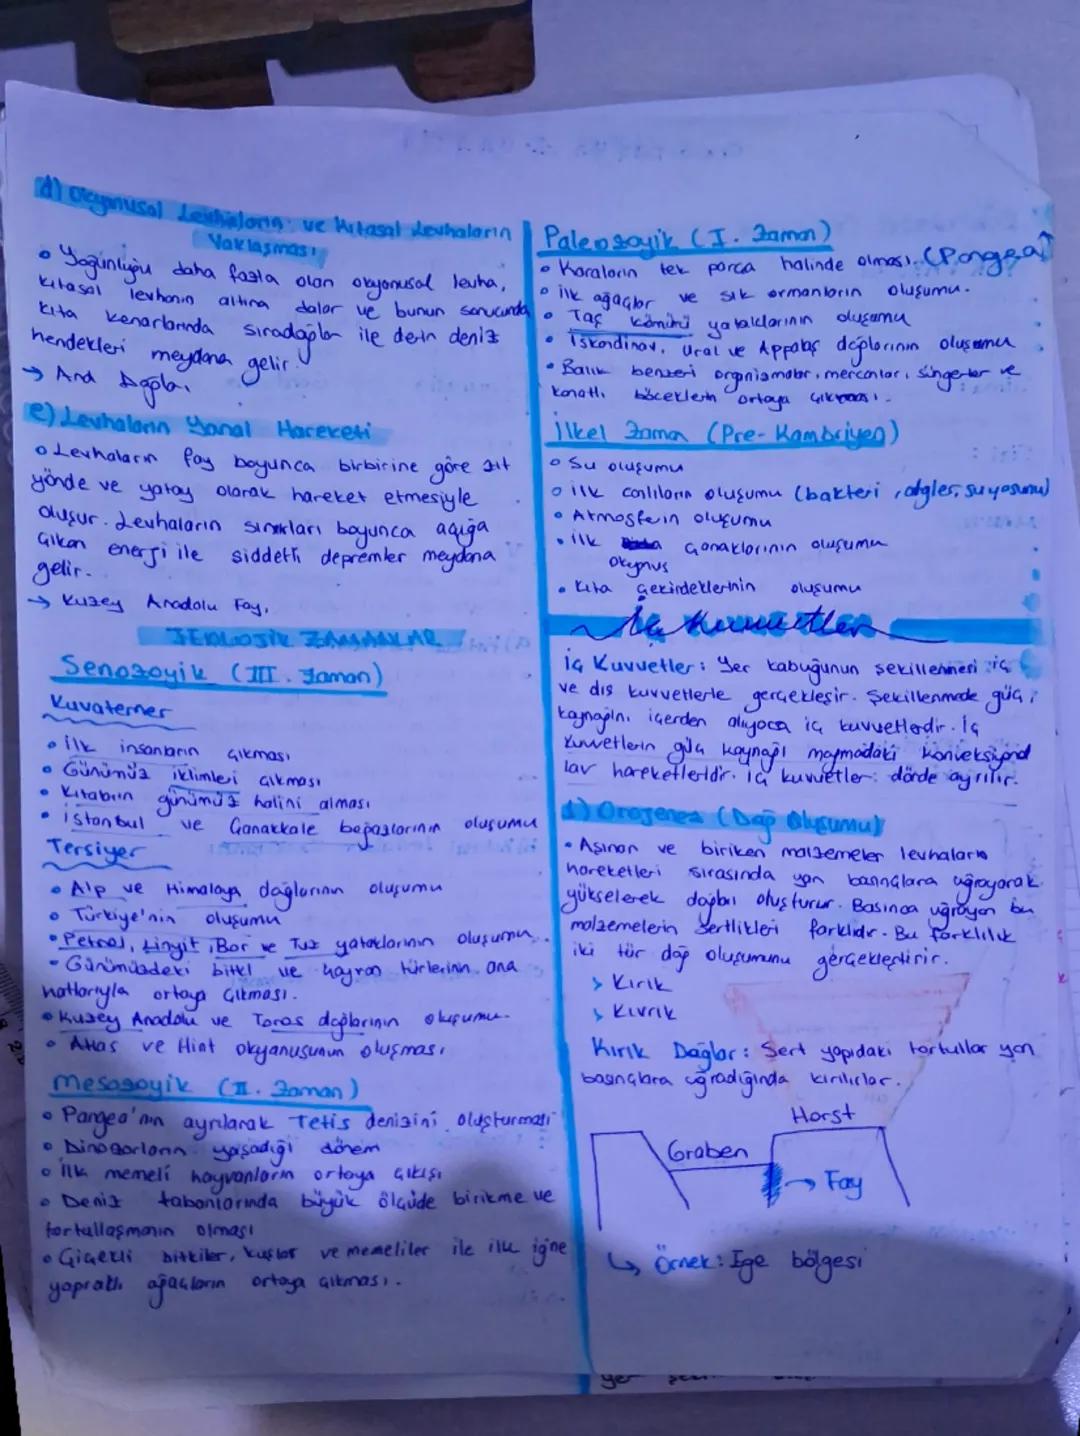 d) Okyanusal Levhaların ve Kıtasal Levhaların
Yaklaşması
• Yoğunluğu daha fazla olan okyanusal levha,
kıtasal levhanın altına dalar ve bunun sonucunda
kıta kenarlarında sıradağlar ile derin deniz
hendekleri meydana gelir.
→ And Dağları
e) Levhaların Yanal Hareketi
• Levhaların fay boyunca birbirine göre zıt
yönde ve yatay olarak hareket etmesiyle
oluşur. Levhaların sınırları boyunca açığa
çıkan enerji ile şiddetli depremler meydana
gelir.
→ Kuzey Anadolu Fay,
JEOLOJİK ZAMANLAR
Senozoyik (III. Zaman)
Kuvaterner
• İlk insanların çıkması
• Günümüz iklimleri çıkması
• Kıtaların günümüz halini alması
• İstanbul ve Çanakkale boğazlarının oluşumu
Tersiyer
• Alp ve Himalaya dağlarının oluşumu
• Türkiye'nin oluşumu
• Petrol, Linyit, Bor ve Tuz yataklarının oluşumu.
• Günümüzdeki bitki ve hayvan türlerinin ana
hatlarıyla ortaya çıkması.
• Kuzey Anadolu ve Toros dağlarının oluşumu.
• Atlas ve Hint okyanusunun oluşması
Mesozoyik (II. Zaman)
• Pangea'nın ayrılarak Tetis denizini oluşturması
• Dinozorların yaşadığı dönem
• İlk memeli hayvanların ortaya çıkışı
• Deniz tabanlarında büyük ölçüde birikme ve
tortullaşmanın olması
• Çiçekli bitkiler, kuşlar ve memeliler ile ilk iğne
yapraklı ağaçların ortaya çıkması.
Paleozoyik (I. Zaman)
• Karaların tek parça halinde olması. (Pangea)
• İlk ağaçlar ve sık ormanların oluşumu.
• Taş kömürü yataklarının oluşumu
• İskandinav, Ural ve Appalaş dağlarının oluşumu
• Balık benzeri organizmalar, mercanlar, süngerler ve
kanatlı böceklerin ortaya çıkması.
İlkel Zaman (Pre-Kambriyen)
• Su oluşumu
• İlk canlıların oluşumu (bakteri, algler, su yosunu)
• Atmosferin oluşumu
• İlk çanaklarının oluşumu
Okyanus
• Kıta çekirdeklerinin oluşumu
İç Kuvvetler
İç Kuvvetler: Yer kabuğunun şekillenmesi iç
ve dış kuvvetlerle gerçekleşir. Şekillenmede güç
kaynağını içerden alıyorsa iç kuvvetlerdir. İç
kuvvetlerin güç kaynağı magmadaki konveksiyonel
lav hareketleridir. İç kuvvetler dörde ayrılır.
1) Orojenez (Dağ Oluşumu)
• Aşınan ve biriken malzemeler levhaların
hareketleri sırasında yan basınçlara uğrayarak
yükselerek dağları oluşturur. Basınca uğrayan bu
malzemelerin sertlikleri farklıdır. Bu farklılık
iki tür dağ oluşumunu gerçekleştirir.
> Kırık
> Kıvrık
Kırık Dağlar: Sert yapıdaki tortullar yan
basınçlara uğradığında kırılırlar.
Horst
Graben
→ Fay
↳ Örnek: Ege bölgesi